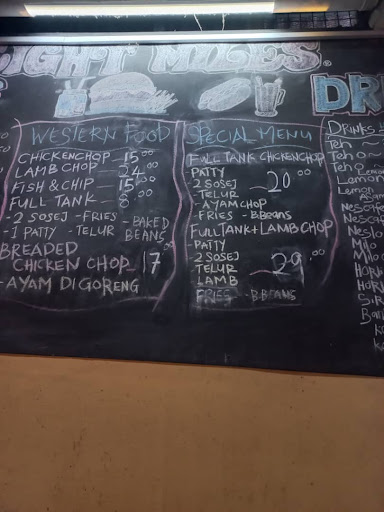 EIGHT MILES.
DR
WESTERN FOOD
CHICKENCHOP — 15.00
LAMB CHOP — 24.00
FISH & CHIP — 15.00
FULL TANK — 8.00
- 2 SOSEJ - FRIES - BAKED
- 1 PATTY - TELUR BEANS
BREADED
CHICKEN CHOP 17.00
- AYAM DI GORENG
SPECIAL MENU
FULL TANK CHICKENCHOP
- PATTY
- 2 SOSEJ — 20.00
- TELUR
- AYAMCHOP
- FRIES - B.BEANS
FULLTANK + LAMB CHOP
- PATTY
- 2 SOSEJ
- TELUR — 29.00
- LAMB
- FRIES - B.BEANS
DRINKS
Teh
Teh O
Teh O
Lemon
Nesca
Neslo
Milo
Milo